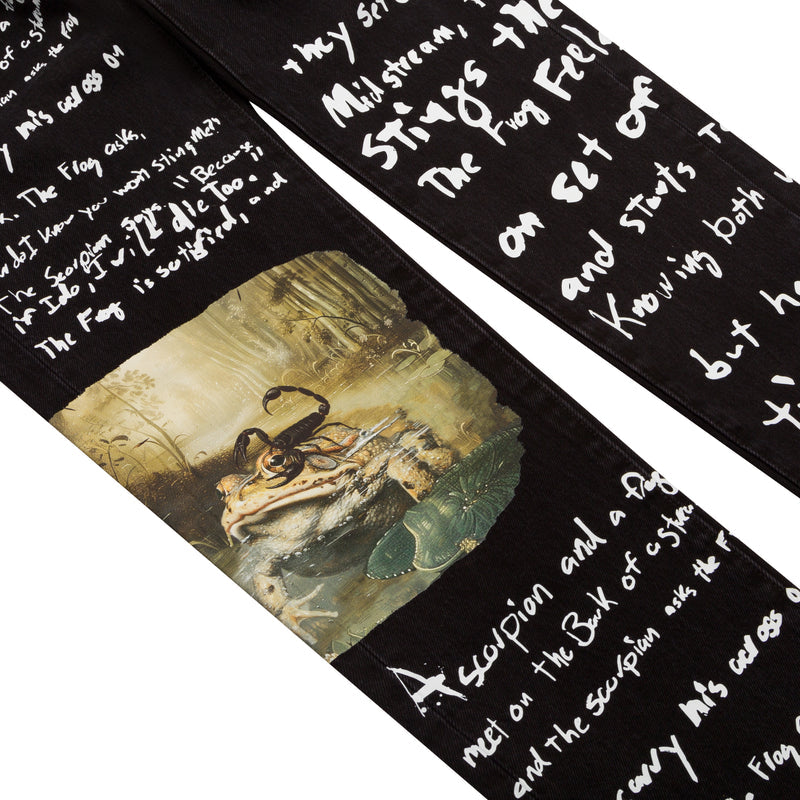 of a strea
asks the Frog
y his across on
k. The Frog asks,
do I know you won't sting me?"
The Scorpian says "Because
if I do, I will die Too."
The Frog is satisfied, and
they set o
Midstream, t
Stings the
The Frog Feels
on set of
and starts T
Knowing both
but ha
A scorpion and a frog
meet on the Bank of a strea
and the scorpian asks the F
carry his across on
The Frog a